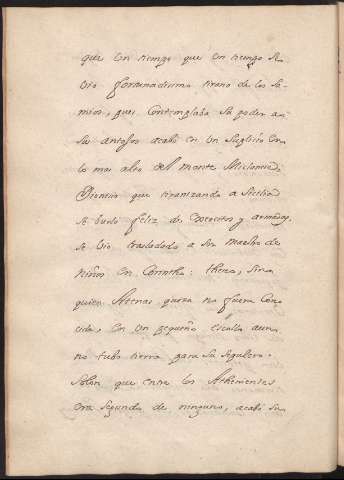 que un tiempo que un tiempo se
vio fortunadissimo tirano de los sa-
mios, pues contemplaba su poder a
su antojos acabó en un suplicio en
lo mas alto del monte
Dionisio que tiranizando a Sicilia
se burló feliz de exercitos y armadas,
se vio trasladado a ser maestro de
niños en Corintho: theseo, sin
quien Atenas quiza no fuera cono
cida, en un pequeño escollo aun
no tubo tierra para su sepulcro.
Solon que entre los Athenienses
era segundo de ninguno, acabó su